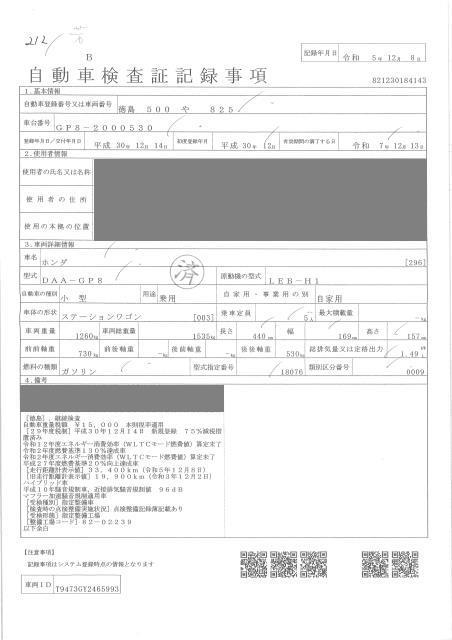 212
B
記録年月日 令和 5年12月 8日
自動車検査証記録事項
821230184143
1.基本情報
自動車登録番号又は車両番号 徳島 500 や 825
車台番号 GP8-2000530
登録年月日/交付年月日 平成 30年 12月 14日 初度登録年月 平成 30年 12月 有効期間の満了する日 令和 7年 12月 13日
2.使用者情報
使用者の氏名又は名称
使用者の住所
使用の本拠の位置
3.車両詳細情報
車名 ホンダ [296]
型式 DAA-GP8 済 原動機の型式 LEB-H1
自動車の種別 小 型 用途 乗用 自家用・事業用の別 自家用
車体の形状 ステーションワゴン [003] 乗車定員 5人 最大積載量 -kg
車両重量 1260kg 車両総重量 1535kg 長さ 440cm 幅 169cm 高さ 157cm
前前軸重 730kg 前後軸重 -kg 後前軸重 -kg 後後軸重 530kg 総排気量又は定格出力 1.49L
燃料の種類 ガソリン 型式指定番号 18076 類別区分番号 0009
4.備考
[徳島],継続検査
自動車重量税額 ¥15,000 本則税率適用
[29年度税制]平成30年12月14日 新規登録 75%減税措
置済み
令和12年度エネルギー消費効率(WLTCモード燃費値)算定未了
令和2年度燃費基準130%達成車
令和2年度エネルギー消費効率(WLTCモード燃費値)算定未了
平成27年度燃費基準20%向上達成車
[走行距離計表示値]33,400km(令和5年12月8日)
[旧走行距離計表示値]19,900km(令和3年12月2日)
ハイブリッド車
平成10年騒音規制車、近接排気騒音規制値 96dB
マフラー加速騒音規制適用車
[受検種別]指定整備車
[検査時の点検整備実施状況]点検整備記録簿記載あり
[受検形態]指定整備工場
[整備工場コード]82-02239
以下余白
【注意事項】
記録事項はシステム登録時点の情報となります
車両ID T9473GY2465993